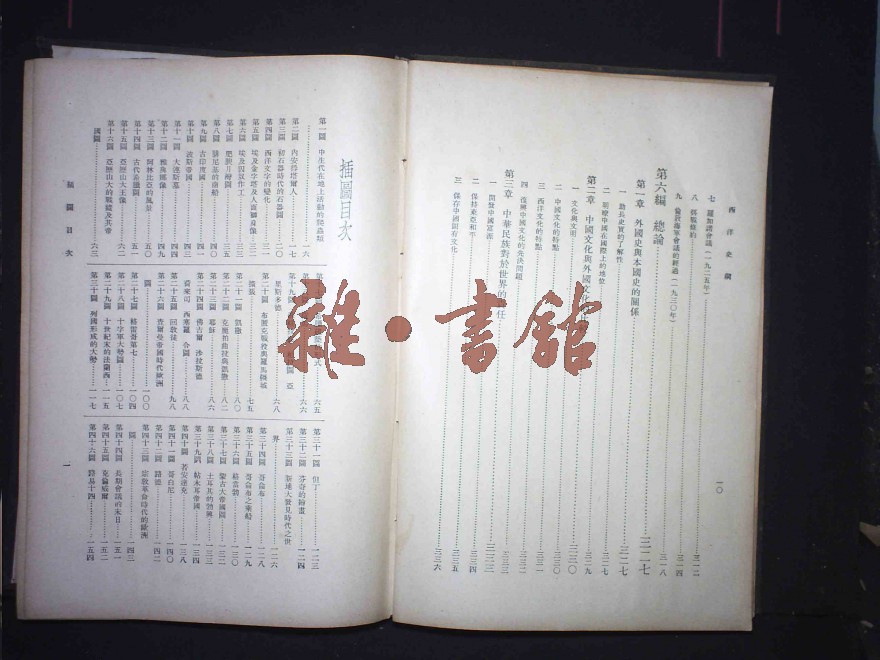 西洋史綱
一〇
七 羅加諾會議（一九二五年）……三一二
八 非戰條約……三一四
九 倫敦海軍會議的經過（一九三〇年）……三一八
第六編 總論……三二一七
第一章 外國史與本國史的關係
一 助長史實的了解性
二 明瞭中國在國際上的地位……三二七
第二章 中國文化與外國文化
一 文化與文明……三三〇
二 中國文化的特點……三三〇
三 西洋文化的特點……三三一
四 復興中國文化的先決問題
第三章 中華民族對於世界的責任……三三三
一 開發中國富源……三三三
二 保持東亞和平……三三四
三 保存中國固有文化……三三五
三三六
雜·書館
插圖目次
第一圖 中生代在地上活動的爬蟲類……一六
第二圖 內安得塔爾人……一七
第三圖 初石器時代的石器圖……二〇
第四圖 西洋文字的變化
第五圖 埃及金字塔及人面獅身像……三一
第六圖
第七圖 肥沃月彎圖……三五
第八圖 腓尼基的商船
第九圖 古印度國……四一
第十圖 波斯帝國
第十一圖 大流士墓
第十二圖 雅典衛像……四九
第十三圖 阿林比亞的風景……五〇
第十四圖 古代希臘圖……五一
第十五圖 亞歷山大王像……六二
第十六圖 亞歷山大的戰蹟及其帝
國圖……六三
六五
第十九圖 亞
里斯多德……六八
第二十圖 布匿克戰役與羅馬領域
擴張……七五
第二十一圖 凱撒……八〇
第二十二圖 克麗柏曲拉與凱撒……八二
第二十三圖 ……八六
第二十四圖 佛古爾 沙拉斯德
西塞羅 合圖……八八
第二十五圖 回教徒……九八
第二十六圖 查爾曼帝國時代歐洲
圖……一〇〇
第二十七圖 格雷哥第七……一〇四
第二十八圖 十字軍大勢圖……一〇七
第二十九圖 十世紀末的法蘭西……一一五
第三十圖 列國形成的大勢……一一七
第三十一圖 但丁……一二三
第三十二圖 芬奇的繪畫……一二四
第三十三圖 新地大發見時代之世
界……一二六
第三十四圖 哥倫布……一二八
第三十五圖 哥倫布之乘船……一二九
第三十六圖 ……一三〇
第三十七圖 蒙古大帝國圖……一三一
第三十八圖 土耳其的勃興……一三三
第三十九圖 帖木耳帝國……一三四
第四十圖 若安達克……一三八
第四十一圖 哥白尼……一四〇
第四十二圖 路德……一四二
第四十三圖 宗教革命時代的歐洲
圖……一四三
第四十四圖 長期會議的末日……一五一
第四十五圖 克倫威爾……一五二
第四十六圖 路易十四……一五四
插圖目次
一